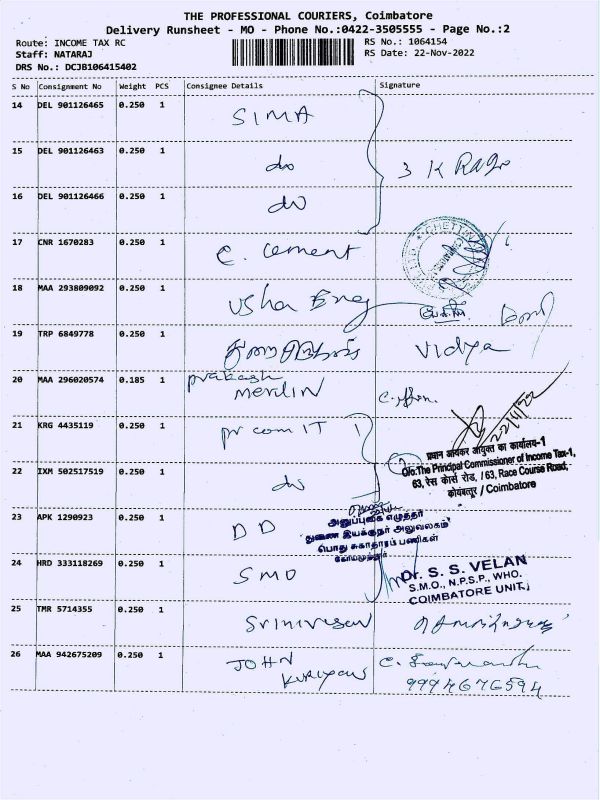 THE PROFESSIONAL COURIERS, Coimbatore
Delivery Runsheet - MO - Phone No.:0422-3505555 - Page No.:2
Route: INCOME TAX RC
RS No.: 1064154
Staff: NATARAJ
RS Date: 22-Nov-2022
DRS No.: DCJB106415402
S No Consignment No Weight PCS Consignee Details Signature
14 DEL 901126465 0.250 1 SIMA
15 DEL 901126463 0.250 1 do 3 K Raja
16 DEL 901126466 0.250 1 do
17 CNR 1670283 0.250 1 C. Cement
CHETTI
18 MAA 293809092 0.250 1 Usha Eng
19 TRP 6849778 0.250 1 Vidya
20 MAA 296020574 0.185 1 prakash
Merilin
21 KRG 4435119 0.250 1 pr com IT 1
22/11/22
प्रधान आयकर आयुक्त का कार्यालय-1
O/o.The Principal Commissioner of Income Tax-1,
63, रेस कोर्स रोड, / 63, Race Course Road,
कोयंबतूर / Coimbatore
22 IXM 502517519 0.250 1 do
23 APK 1290923 0.250 1 DD
அனுப்புகை எழுத்தர்
துணை இயக்குநர் அலுவலகம்
பொது சுகாதாரம் பணிகள்
கோயமுத்தூர்
24 HRD 333118269 0.250 1 SMO
Dr. S. S. VELAN
S.M.O., N.P.S.P., WHO.
COIMBATORE UNIT,
25 TMR 5714355 0.250 1 Srinivasan
26 MAA 942675209 0.250 1 JOHN
KURIYAN
9994676594